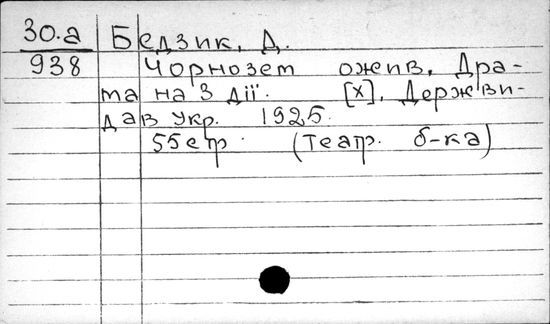 30.а Бедзик, Д.
938 Чорнозем ожив, Дра-
ма на 3 дії. [Х], Держви-
дав Укр. 1925.
55 стр. (Театр. б-ка)